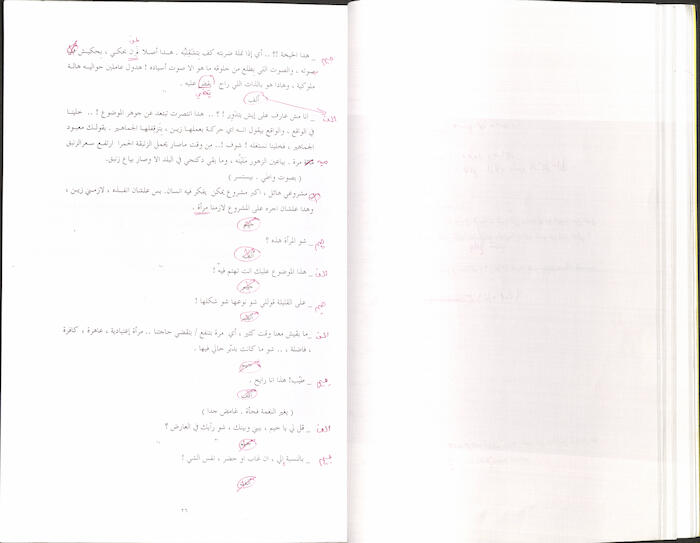 جيم _ هذا الحيحة !؟ .. أي إذا نملة ضربته كف بتشقلبُه . هذا أصلا فزن يحكي ، بحكيش
بصوته ، والصوت اللي بطلع من حلوقه ما هو الا صوت أسياده ! هدول عاملين حوالينه هالة
ملوكية ، وهاذا هو بالذات اللي راح يقضي عليه .
ألف
الف _ أنا مش عارف على إيش بتدَوِر ! ؟ .. هذا انتصرت نبتعد عن جوهر الموضوع ! .. خلينا
في الواقع ، والواقع بيقول انـه اي حركـة بعملهـا زيـن ، بتزقفلهـا الجماهيـر . بقولـك معبـود
الجماهير ، فخلينا نستغله ! شوف !.. مِن وقت ماصار يحمل الزنبقة الحمرا ارتفـع سـعرالزنبق
ميه مرة . بياعين الزهور مَليّنه ، وما بقي دكنجي في البلد الا وصار بياع زنبق.
( بصوت واطي . بيستسر )
مشروعي هائل ، اكبر مشروع يمكن يفكر فيه انسان. بس علشان انفـذه ، لازمـني زيـن ،
وهذا علشان اجره على المشروع لازمنا مرأة .
جيم
جيم _ شو المرأة هذه ؟
ألف
الف _ هذا الموضوع عليك انت تهتم فيه !
جيم
جيم _ على القليلة قولتي شو نوعها شو شكلها !
ألف
الف _ ما بقيش معنا وقت كثير ، أي مرة بتنفع / بتقضي حاجتنا .. مرأة إعتيادية ، عاهرة ، كافرة
، فاضلة ، .. شو ما كانت بدبّر حالي فيها .
جيم
جيم _ طيّب! هذا انا رايح .
ألف
( يغير النغمة فجأة . غامض جدا )
الف _ قل لي يا جيم ، بيني وبينك ، شو رأيك في العارض ؟
جيم
جيم _ بالنسبة إلي ، ان غاب او حضر ، نفس الشي !
ألف
٢٦